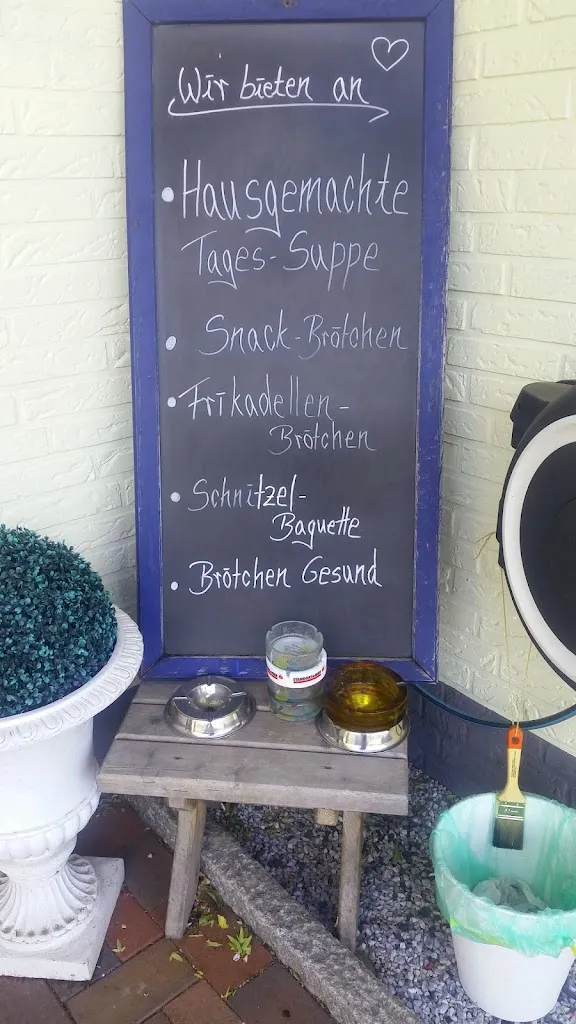 Wir bieten an
• Hausgemachte
Tages-Suppe
• Snack-Brötchen
• Frikadellen-
Brötchen
• Schnitzel-
Baguette
• Brötchen Gesund